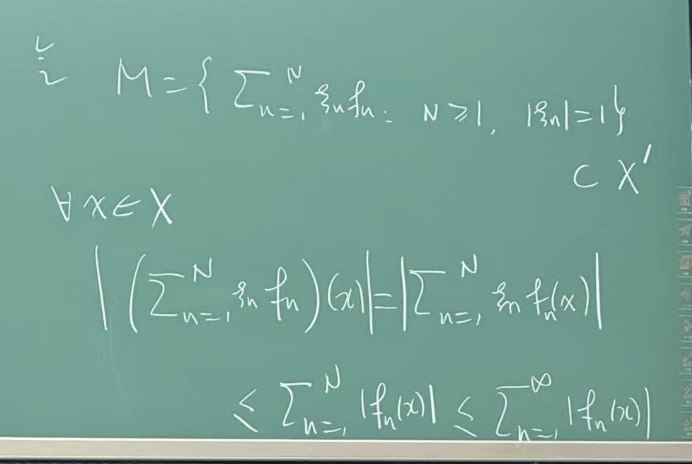 M = { ∑_{n=1}^N ξ_n f_n : N ≥ 1, |ξ_n| = 1 }
⊂ X'
∀ x ∈ X
| ( ∑_{n=1}^N ξ_n f_n ) (x) | = | ∑_{n=1}^N ξ_n f_n(x) |
≤ ∑_{n=1}^N |f_n(x)| ≤ ∑_{n=1}^∞ |f_n(x)|